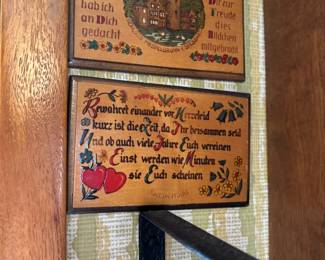 hab ich
an Dich
gedacht
Dir zur
Freude
dies
Bildchen
mitgebracht
Bewahret einander vor Herzeleid
kurz ist die Zeit, da Ihr beisammen seid
Und ob auch viele Jahre Euch vereinen
Einst werden wie Minuten
sie Euch scheinen